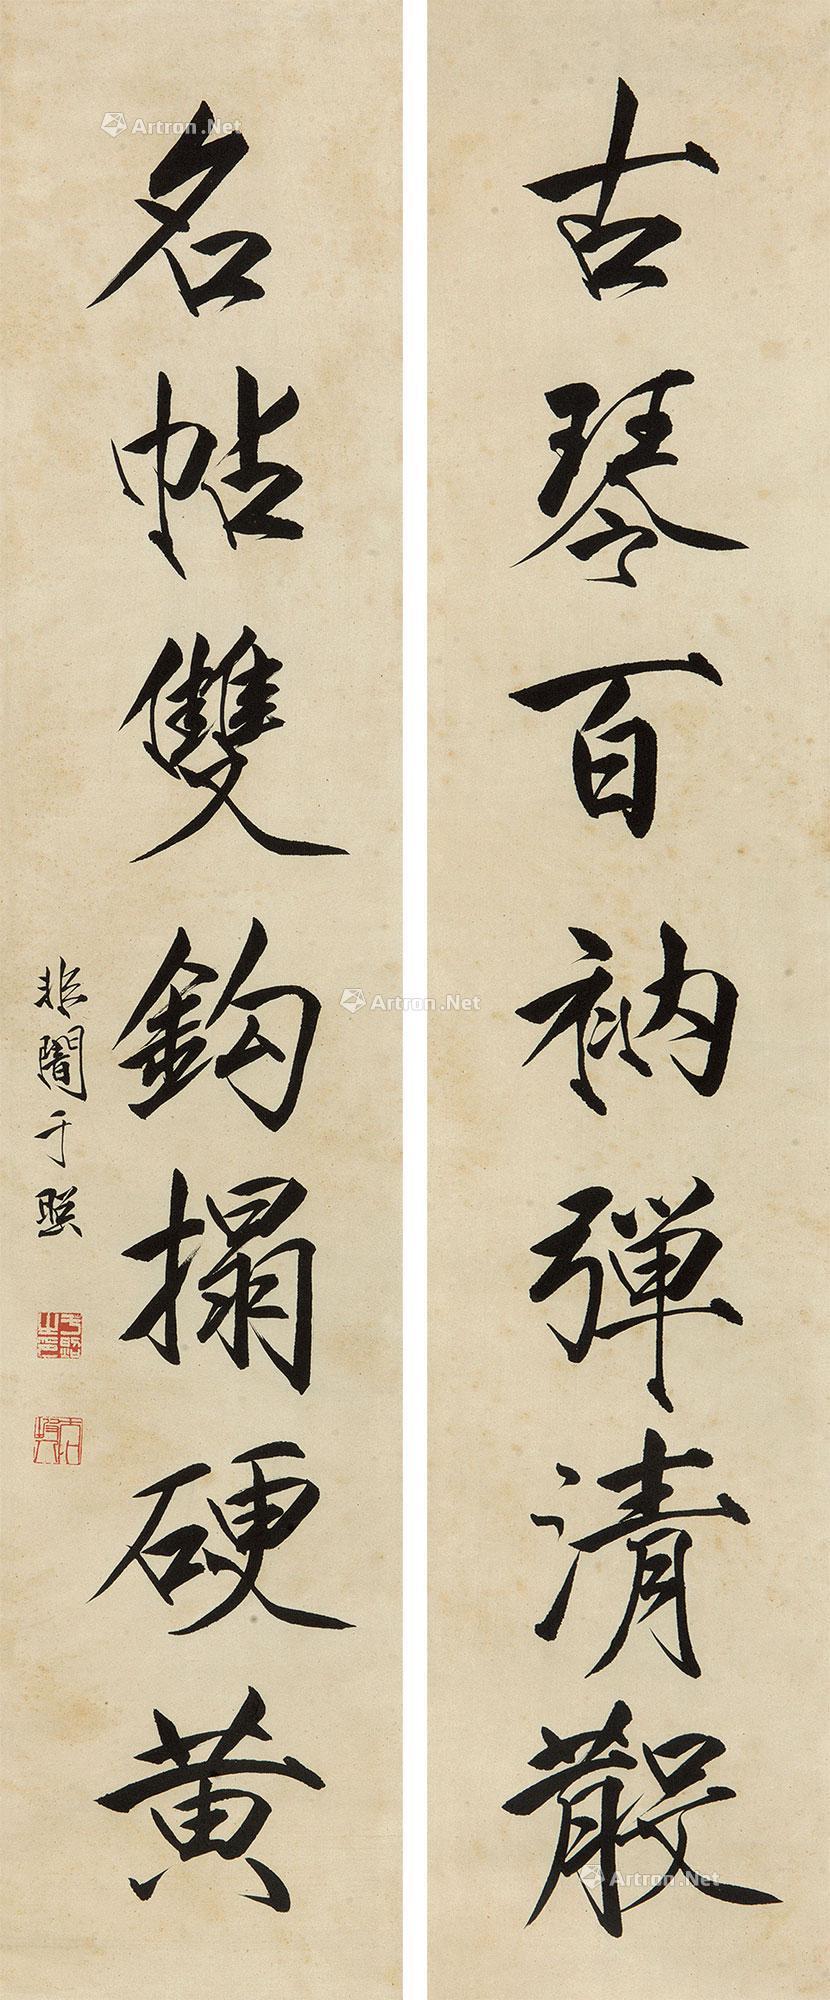 古琴百衲弹清散
名帖雙鈎搨硬黄
非闇于照
Artron.Net
Artron.Net
Artron.Net